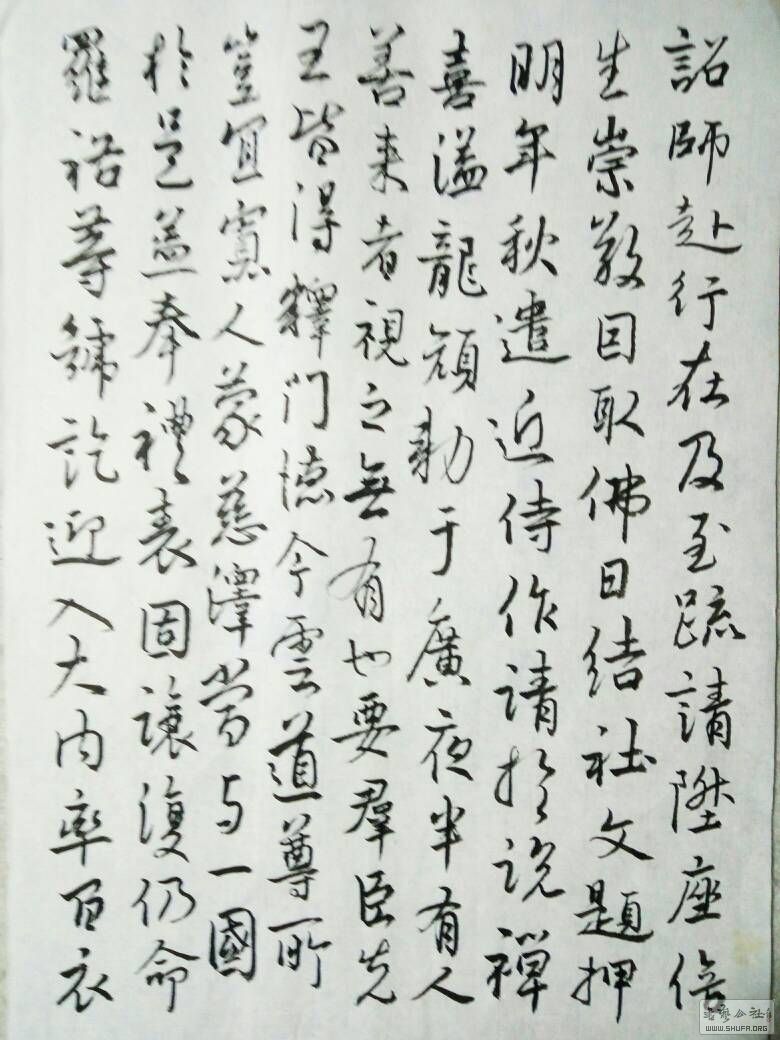 詔師赴行在及至疏請陞座倍
生崇敬因取佛日結社文題押
明年秋遣近侍作請於說禪
喜溢龍顏勅于廣夜半有人
善來者視之無有也要群臣先
王皆得釋門德今雲道尊所
豈宜寡人蒙慈澤當与一國
於是益奉禮表固讓復仍命
羅裕等號訖迎入大内率百衣
WWW.SHUFA.ORG